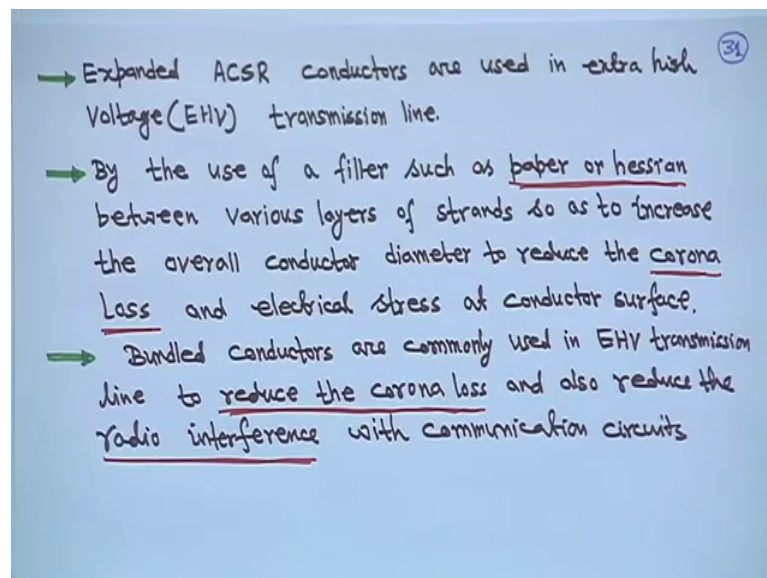 31
→ Expanded ACSR conductors are used in extra high
Voltage (EHV) transmission line.
→ By the use of a filler such as paper or hessian
between various layers of strands so as to increase
the overall conductor diameter to reduce the corona
Loss and electrical stress at conductor surface.
→ Bundled conductors are commonly used in EHV transmission
line to reduce the corona loss and also reduce the
radio interference with communication circuits